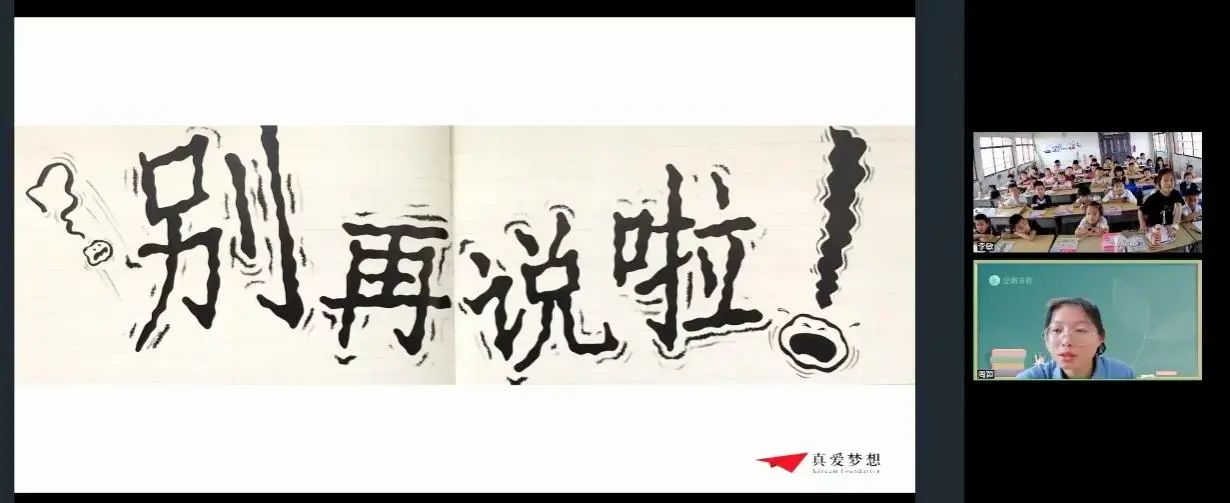 别再说啦!
真爱梦想
Adream Foundation
李敏
周颖